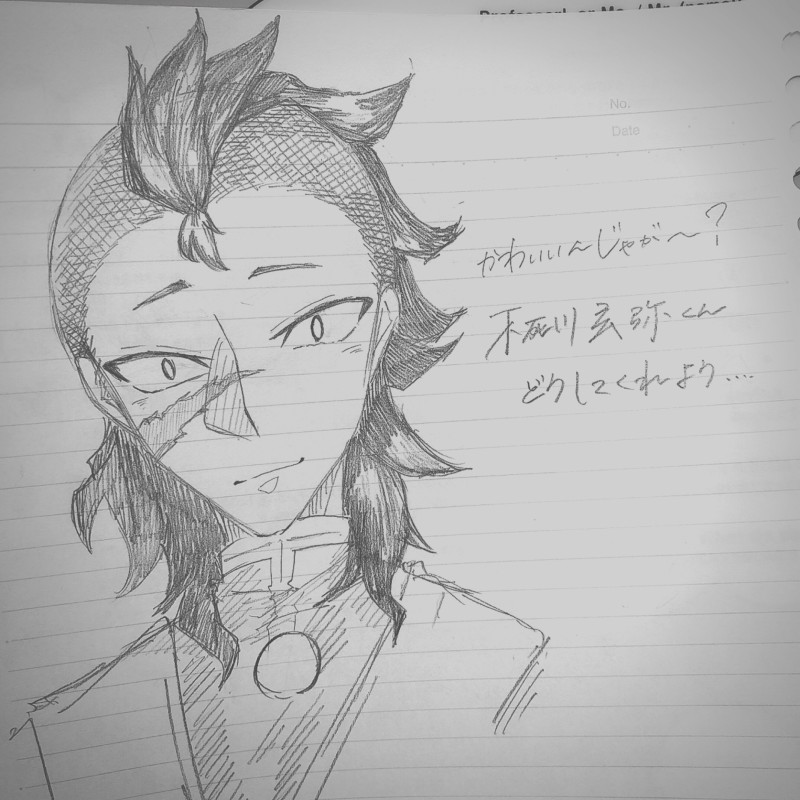 Professor/ or Ms. / Mr. (name):
No.
Date
かわいいんじゃが〜?
不死川玄弥くん
どうしてくれよう....